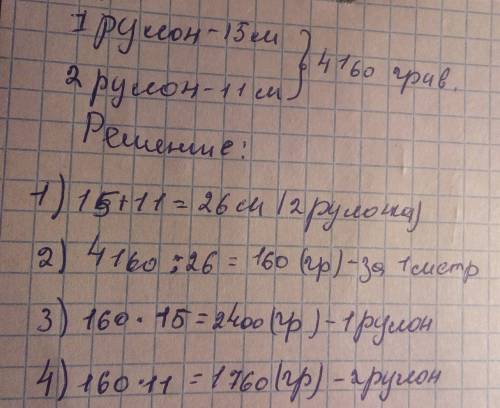 1 рулон - 15 м
2 рулон - 11 м } 4160 грив.
Решение:
1) 15 + 11 = 26 м (2 рулона)
2) 4160 : 26 = 160 (гр) - за 1 метр
3) 160 · 15 = 2400 (гр) - 1 рулон
4) 160 · 11 = 1760 (гр) - 2 рулон